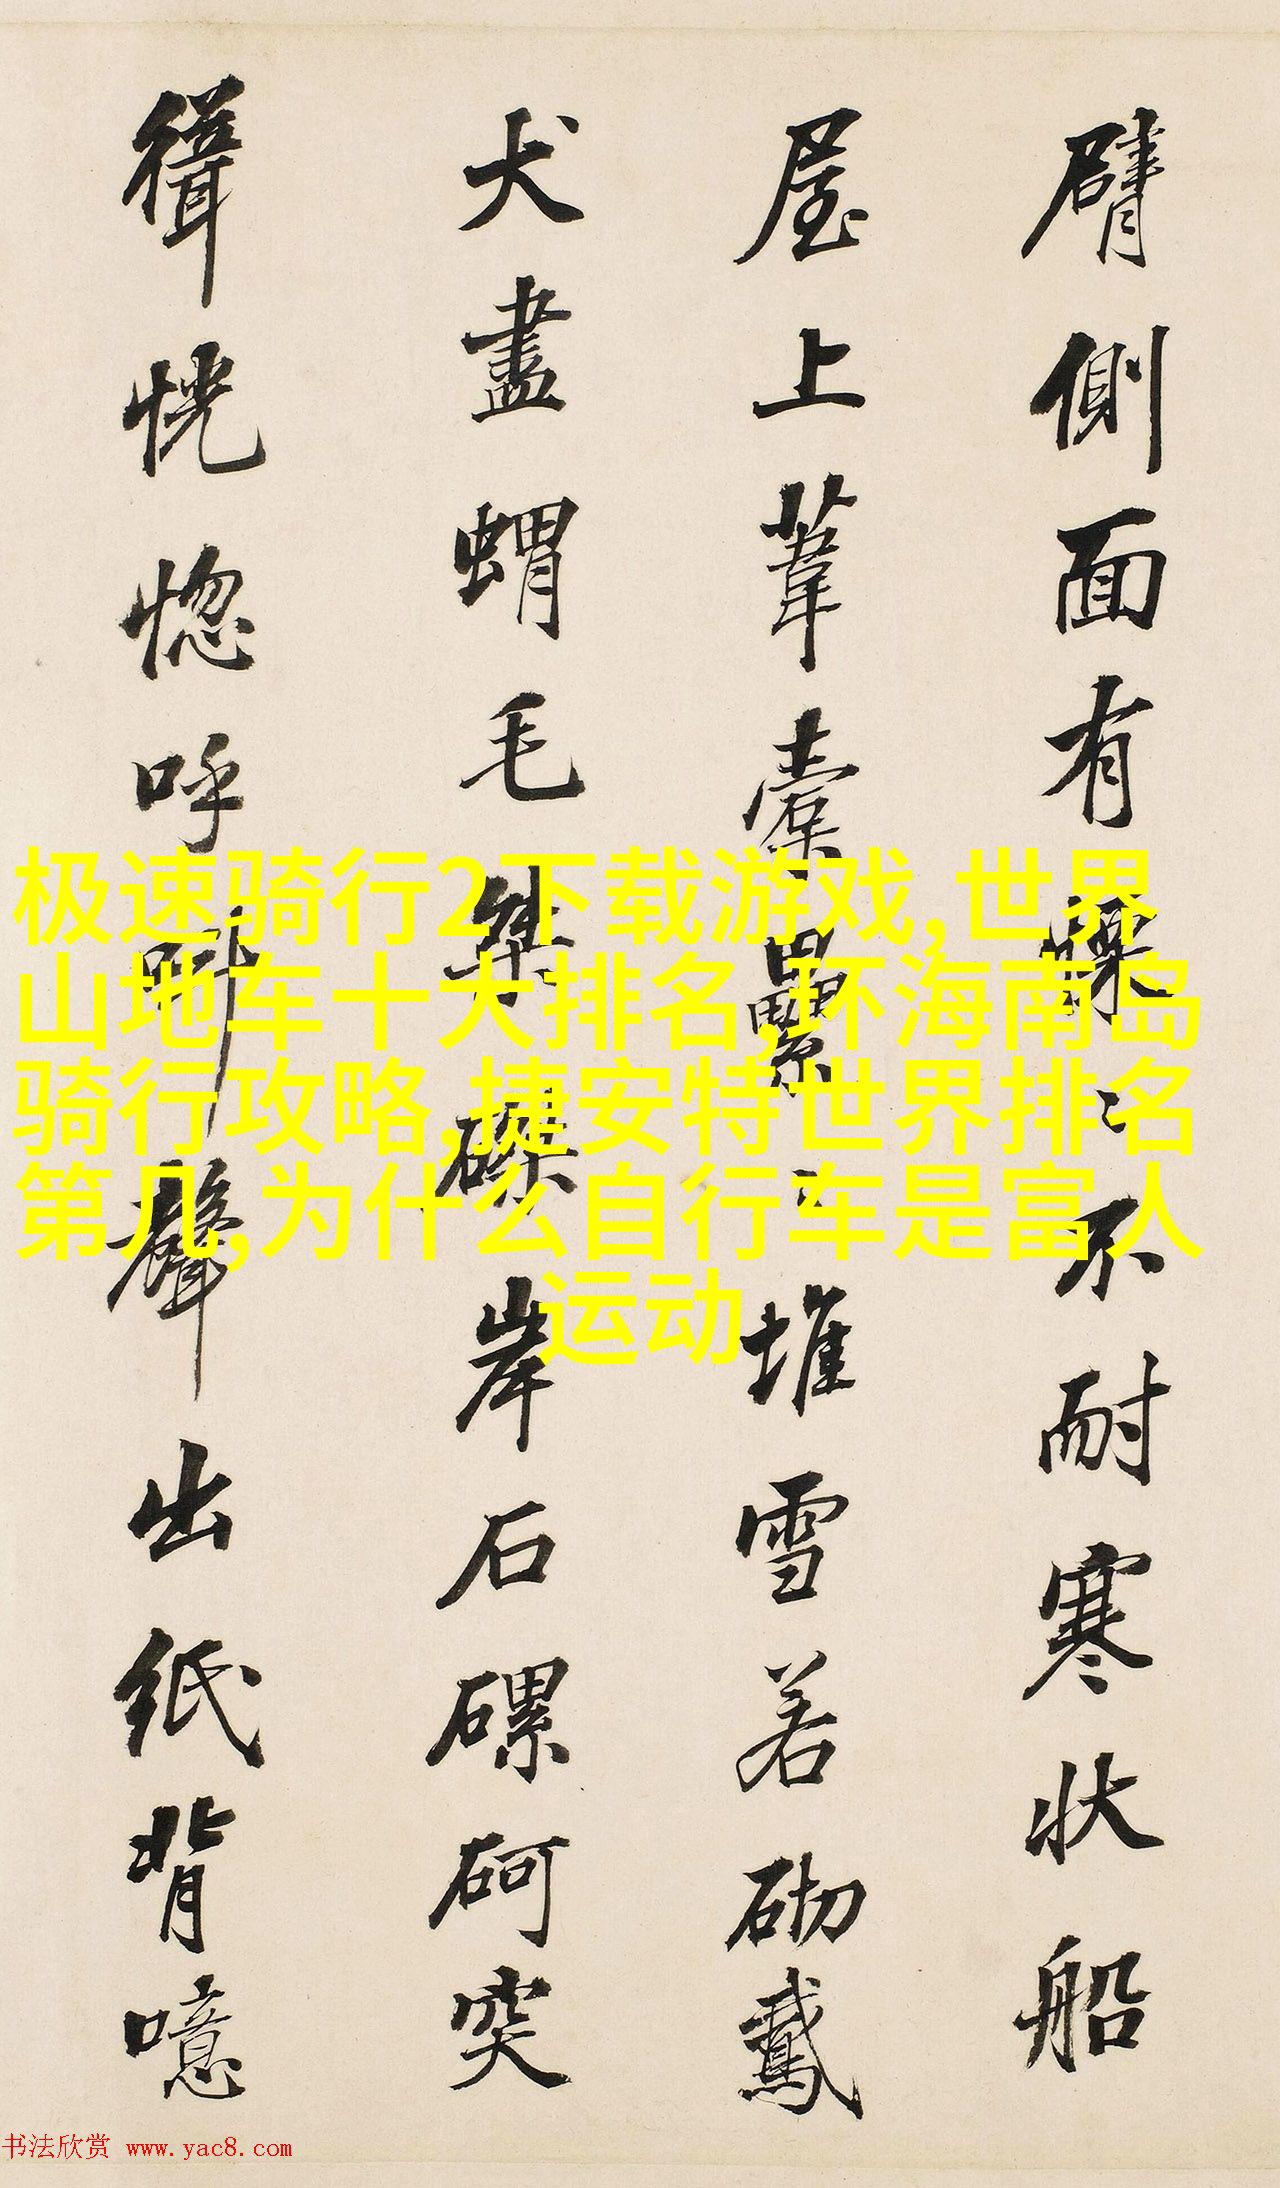 臂側面有慄〻不耐寒状船
屋上葦橐纍〻堆雪若砌鵞
犬盡蝟毛桀磔岸石磥砢突
恍惚呼叫聲出紙背噫
极速骑行2下载游戏,世界
山地车十大排名,环海南岛
骑行攻略,捷安特世界排名
第几,为什么自行车是富人
运动
书法欣赏 www.yac8.com